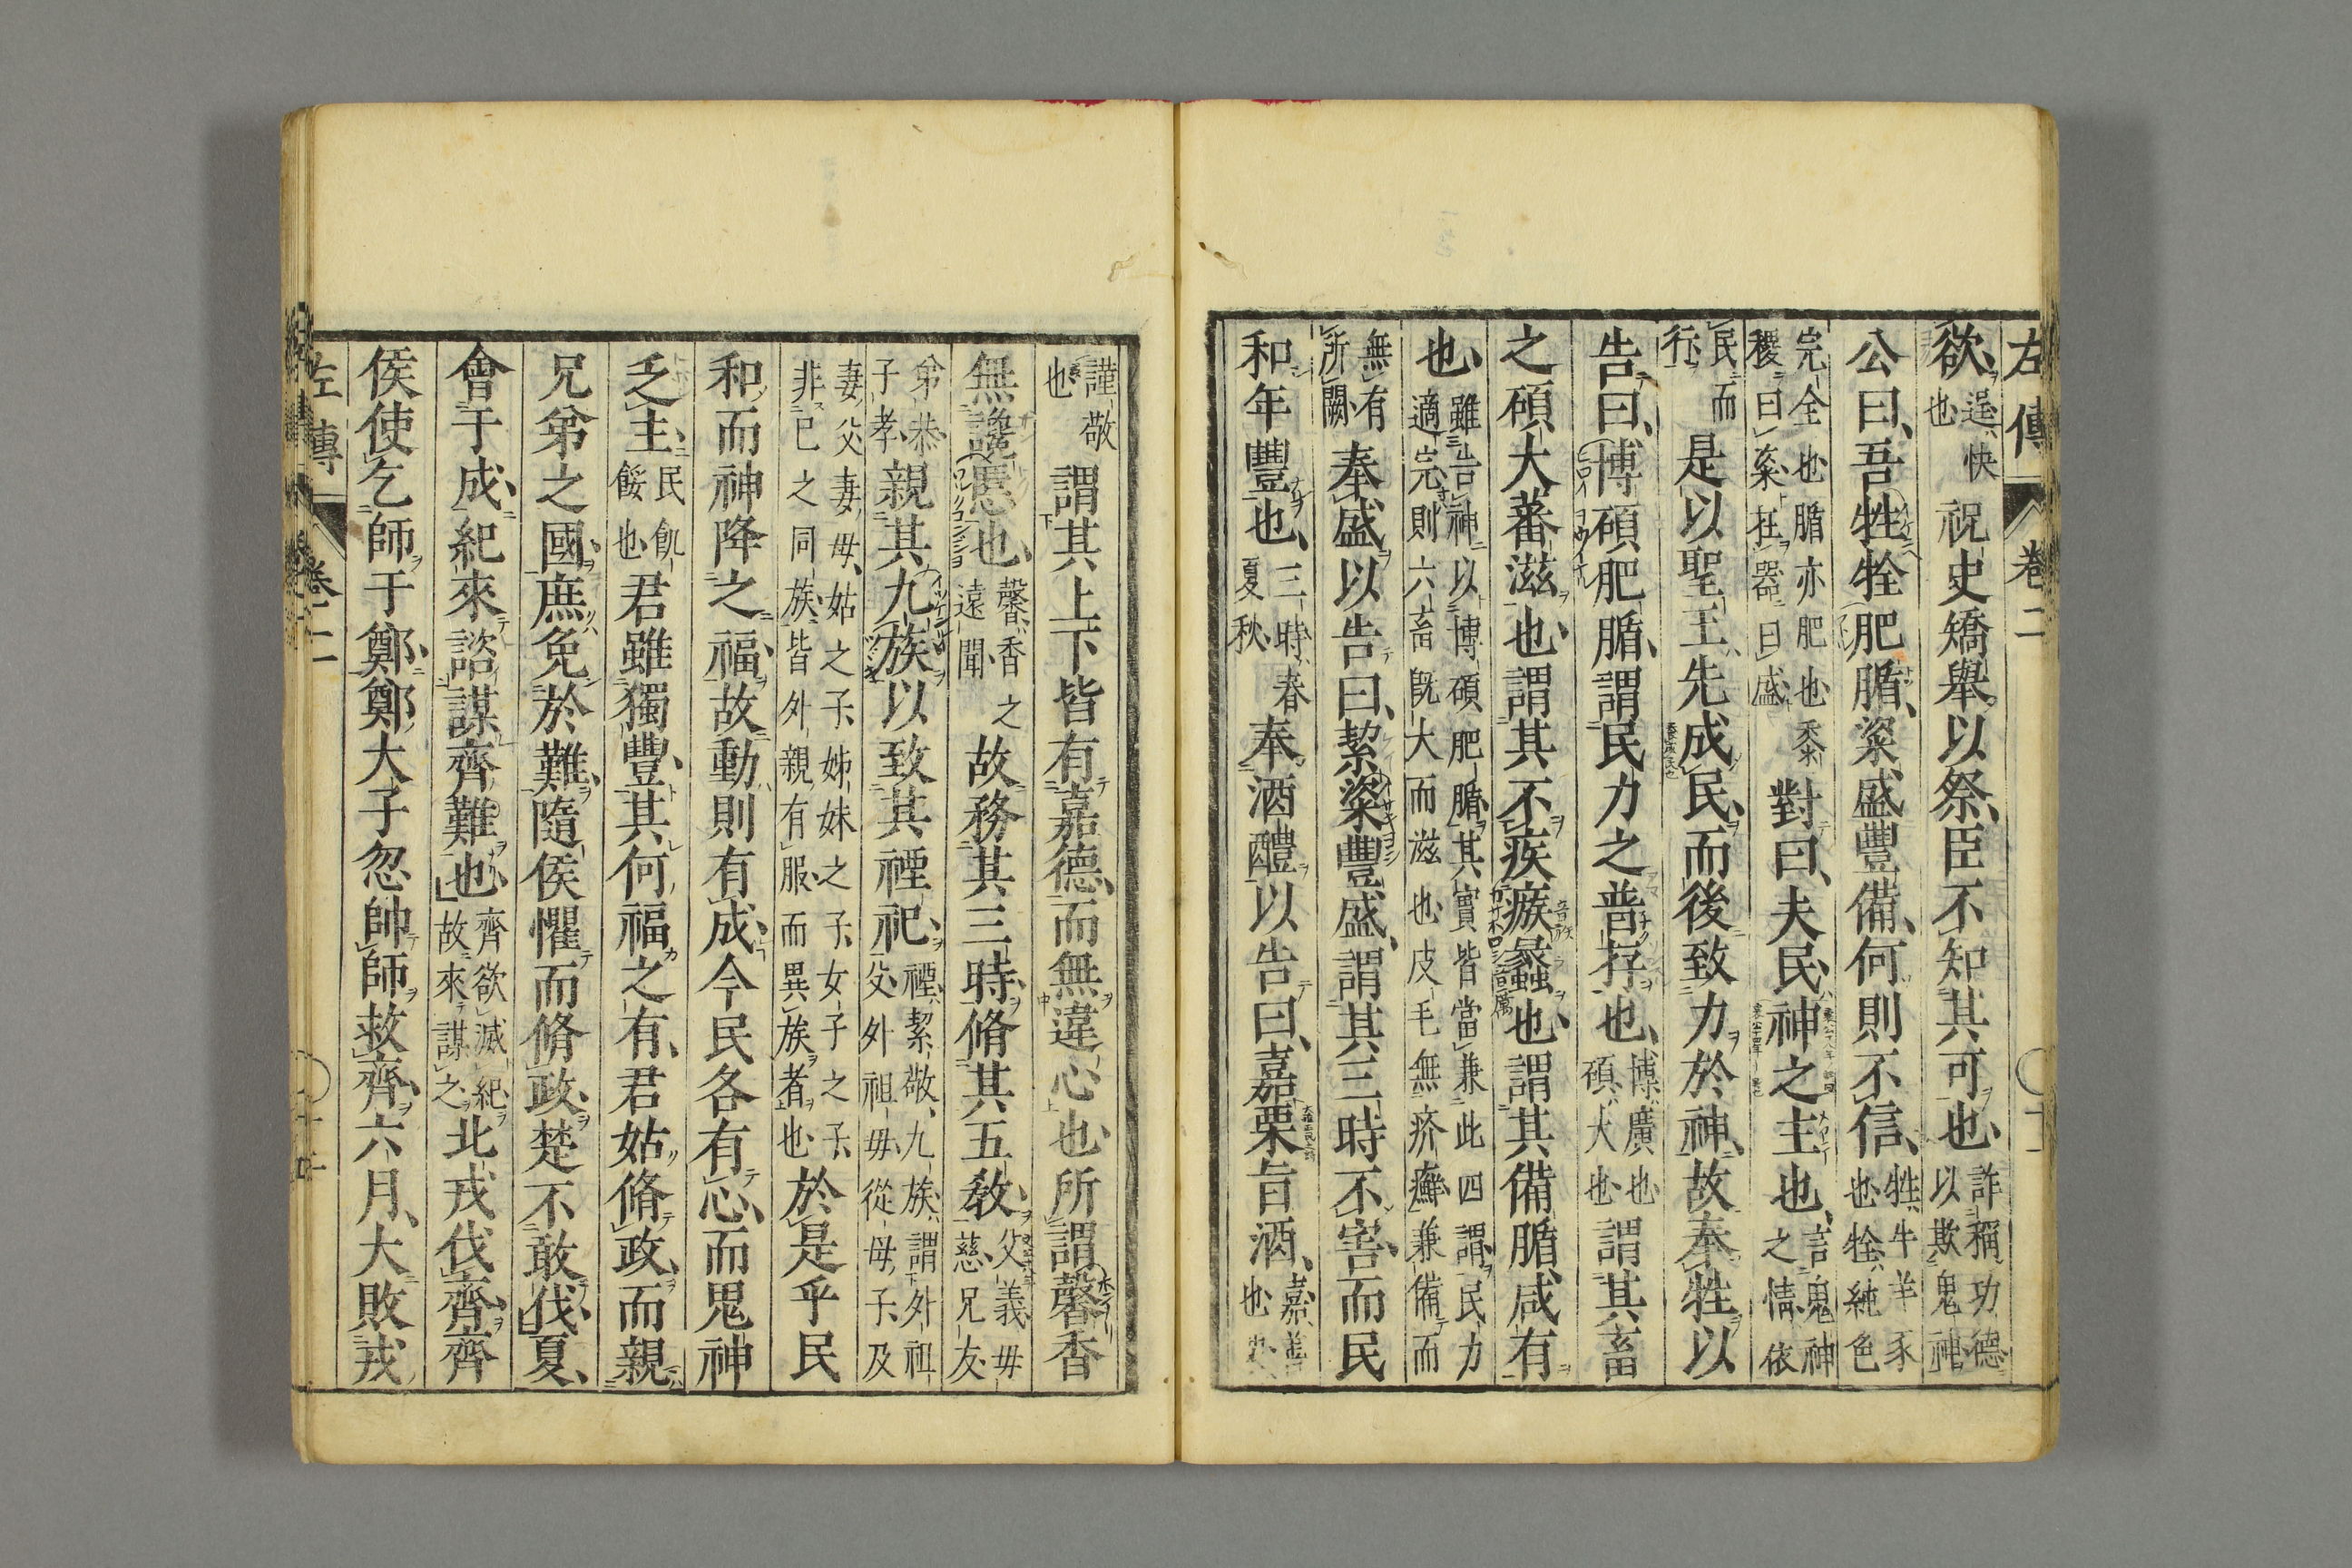 左傳 卷二
欲逞快也祝史矯舉以祭臣不知其可也詐稱功德以欺鬼神
公曰吾牲牷肥腯粢盛豐備何則不信牲牛羊豕也牷純色
完全也腯亦肥也黍稷曰粢在器曰盛對曰夫民神之主也言鬼神之情依
民而行是以聖王先成民而後致力於神故奉牲以
告曰博碩肥腯謂民力之普存也博廣也碩大也謂其畜
之碩大蕃滋也謂其不疾瘯蠡也謂其備腯咸有
也雖告神以博碩肥腯其實皆當兼此四謂民力適完則六畜既大而滋也皮毛無疥癬兼備而
無有所闕奉盛以告曰絜粢豐盛謂其三時不害而民
和年豐也三時春夏秋奉酒醴以告曰嘉栗旨酒嘉善也
謹敬也謂其上下皆有嘉德而無違心也所謂馨香
無讒慝也馨香之遠聞故務其三時脩其五教父義母慈兄友
弟恭子孝親其九族以致其禋祀禋絜敬九族謂外祖父外祖母從母子及
妻父妻母姑之子姊妹之子女子之子非己之同族皆外親有服而異族者也於是乎民
和而神降之福故動則有成今民各有心而鬼神
乏主民飢餒也君雖獨豐其何福之有君姑脩政而親
兄弟之國庶免於難隨侯懼而脩政楚不敢伐夏
會于成紀來諮謀齊難也齊欲滅紀故來謀之北戎伐齊齊
侯使乞師于鄭鄭大子忽帥師救齊六月大敗戎
左傳 卷二